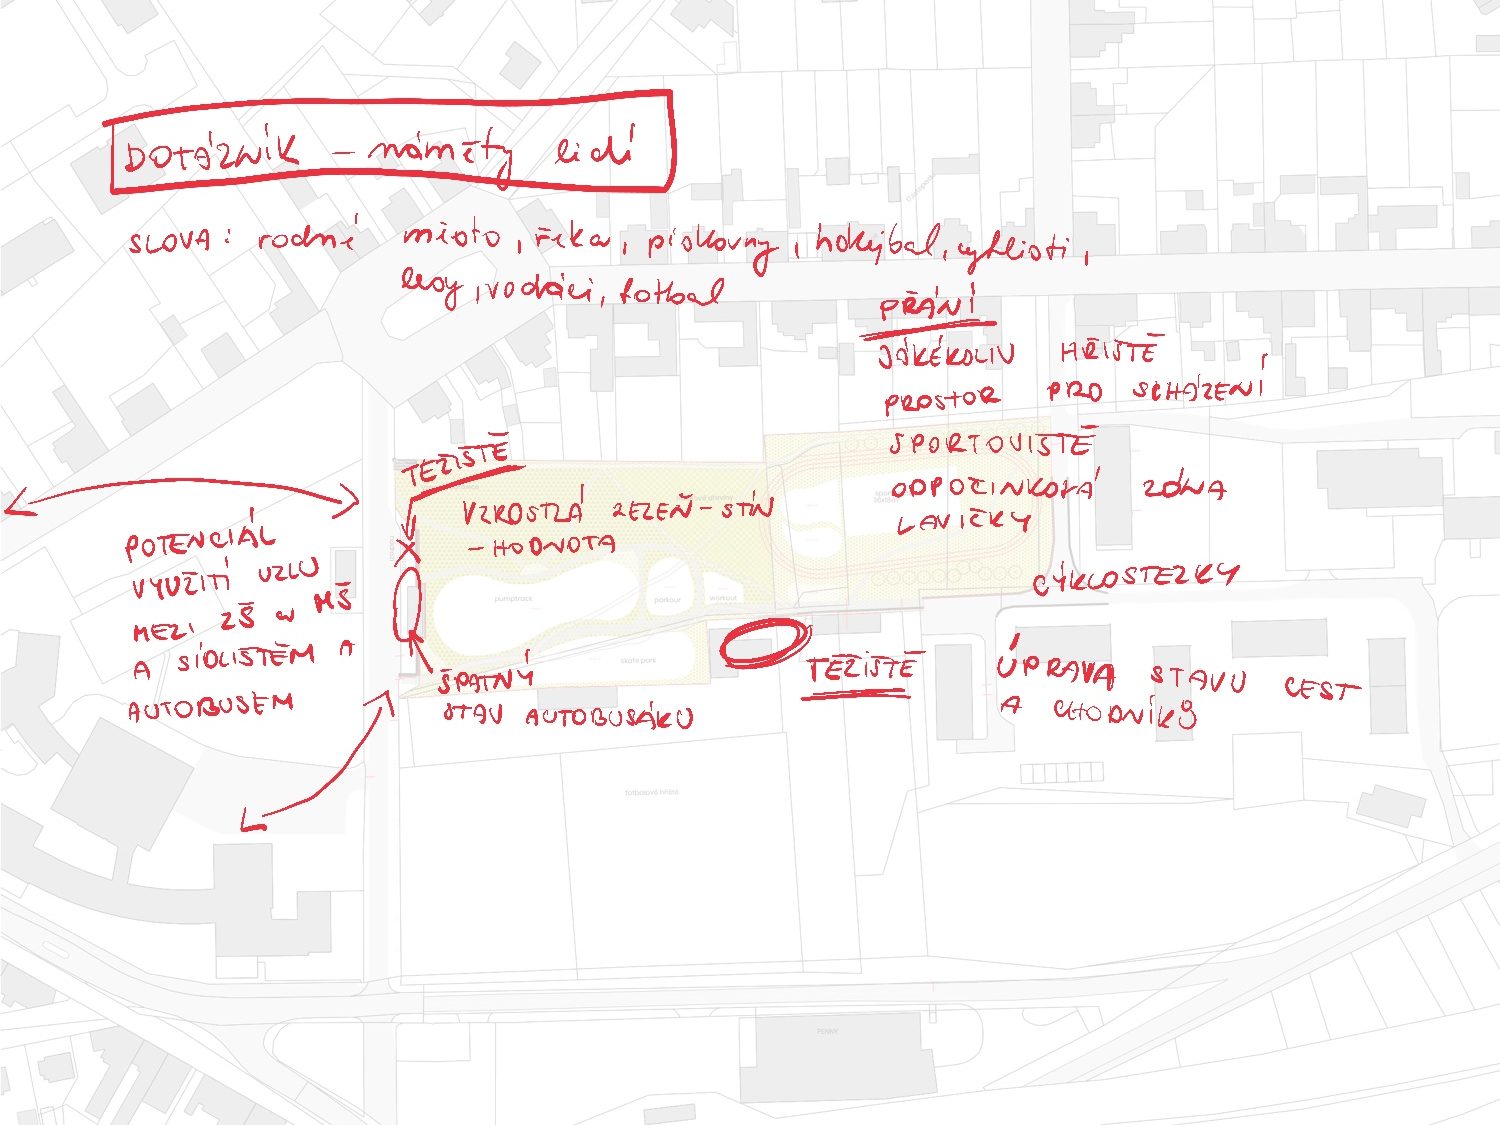 DOTÁZNÍK – náměty lidí
SLOVA: rodné místo, řeka, pískovny, hokejbal, cyklisti,
lesy, vodáci, fotbal
PŘÁNÍ
JÁKÉKOLIV HŘIŠTĚ
PROSTOR PRO SCHÁZENÍ
SPORTOVIŠTĚ
ODPOČINKOVÁ ZÓNA
LAVIČKY
CYKLOSTEZKY
ÚPRAVA STAVU CEST
A CHODNÍKŮ
TĚŽIŠTĚ
VZROSTLÁ ZELEŇ – STÍN
– HODNOTA
POTENCIÁL
VYUŽITÍ UZLU
MEZI ZŠ a MŠ
A SÍDLIŠTĚM A
AUTOBUSEM
ŠPATNÝ
STAV AUTOBUSÁKU
TĚŽIŠTĚ
pumptrack
parkour
workout
skate park
fotbalové hřiště
PENNY